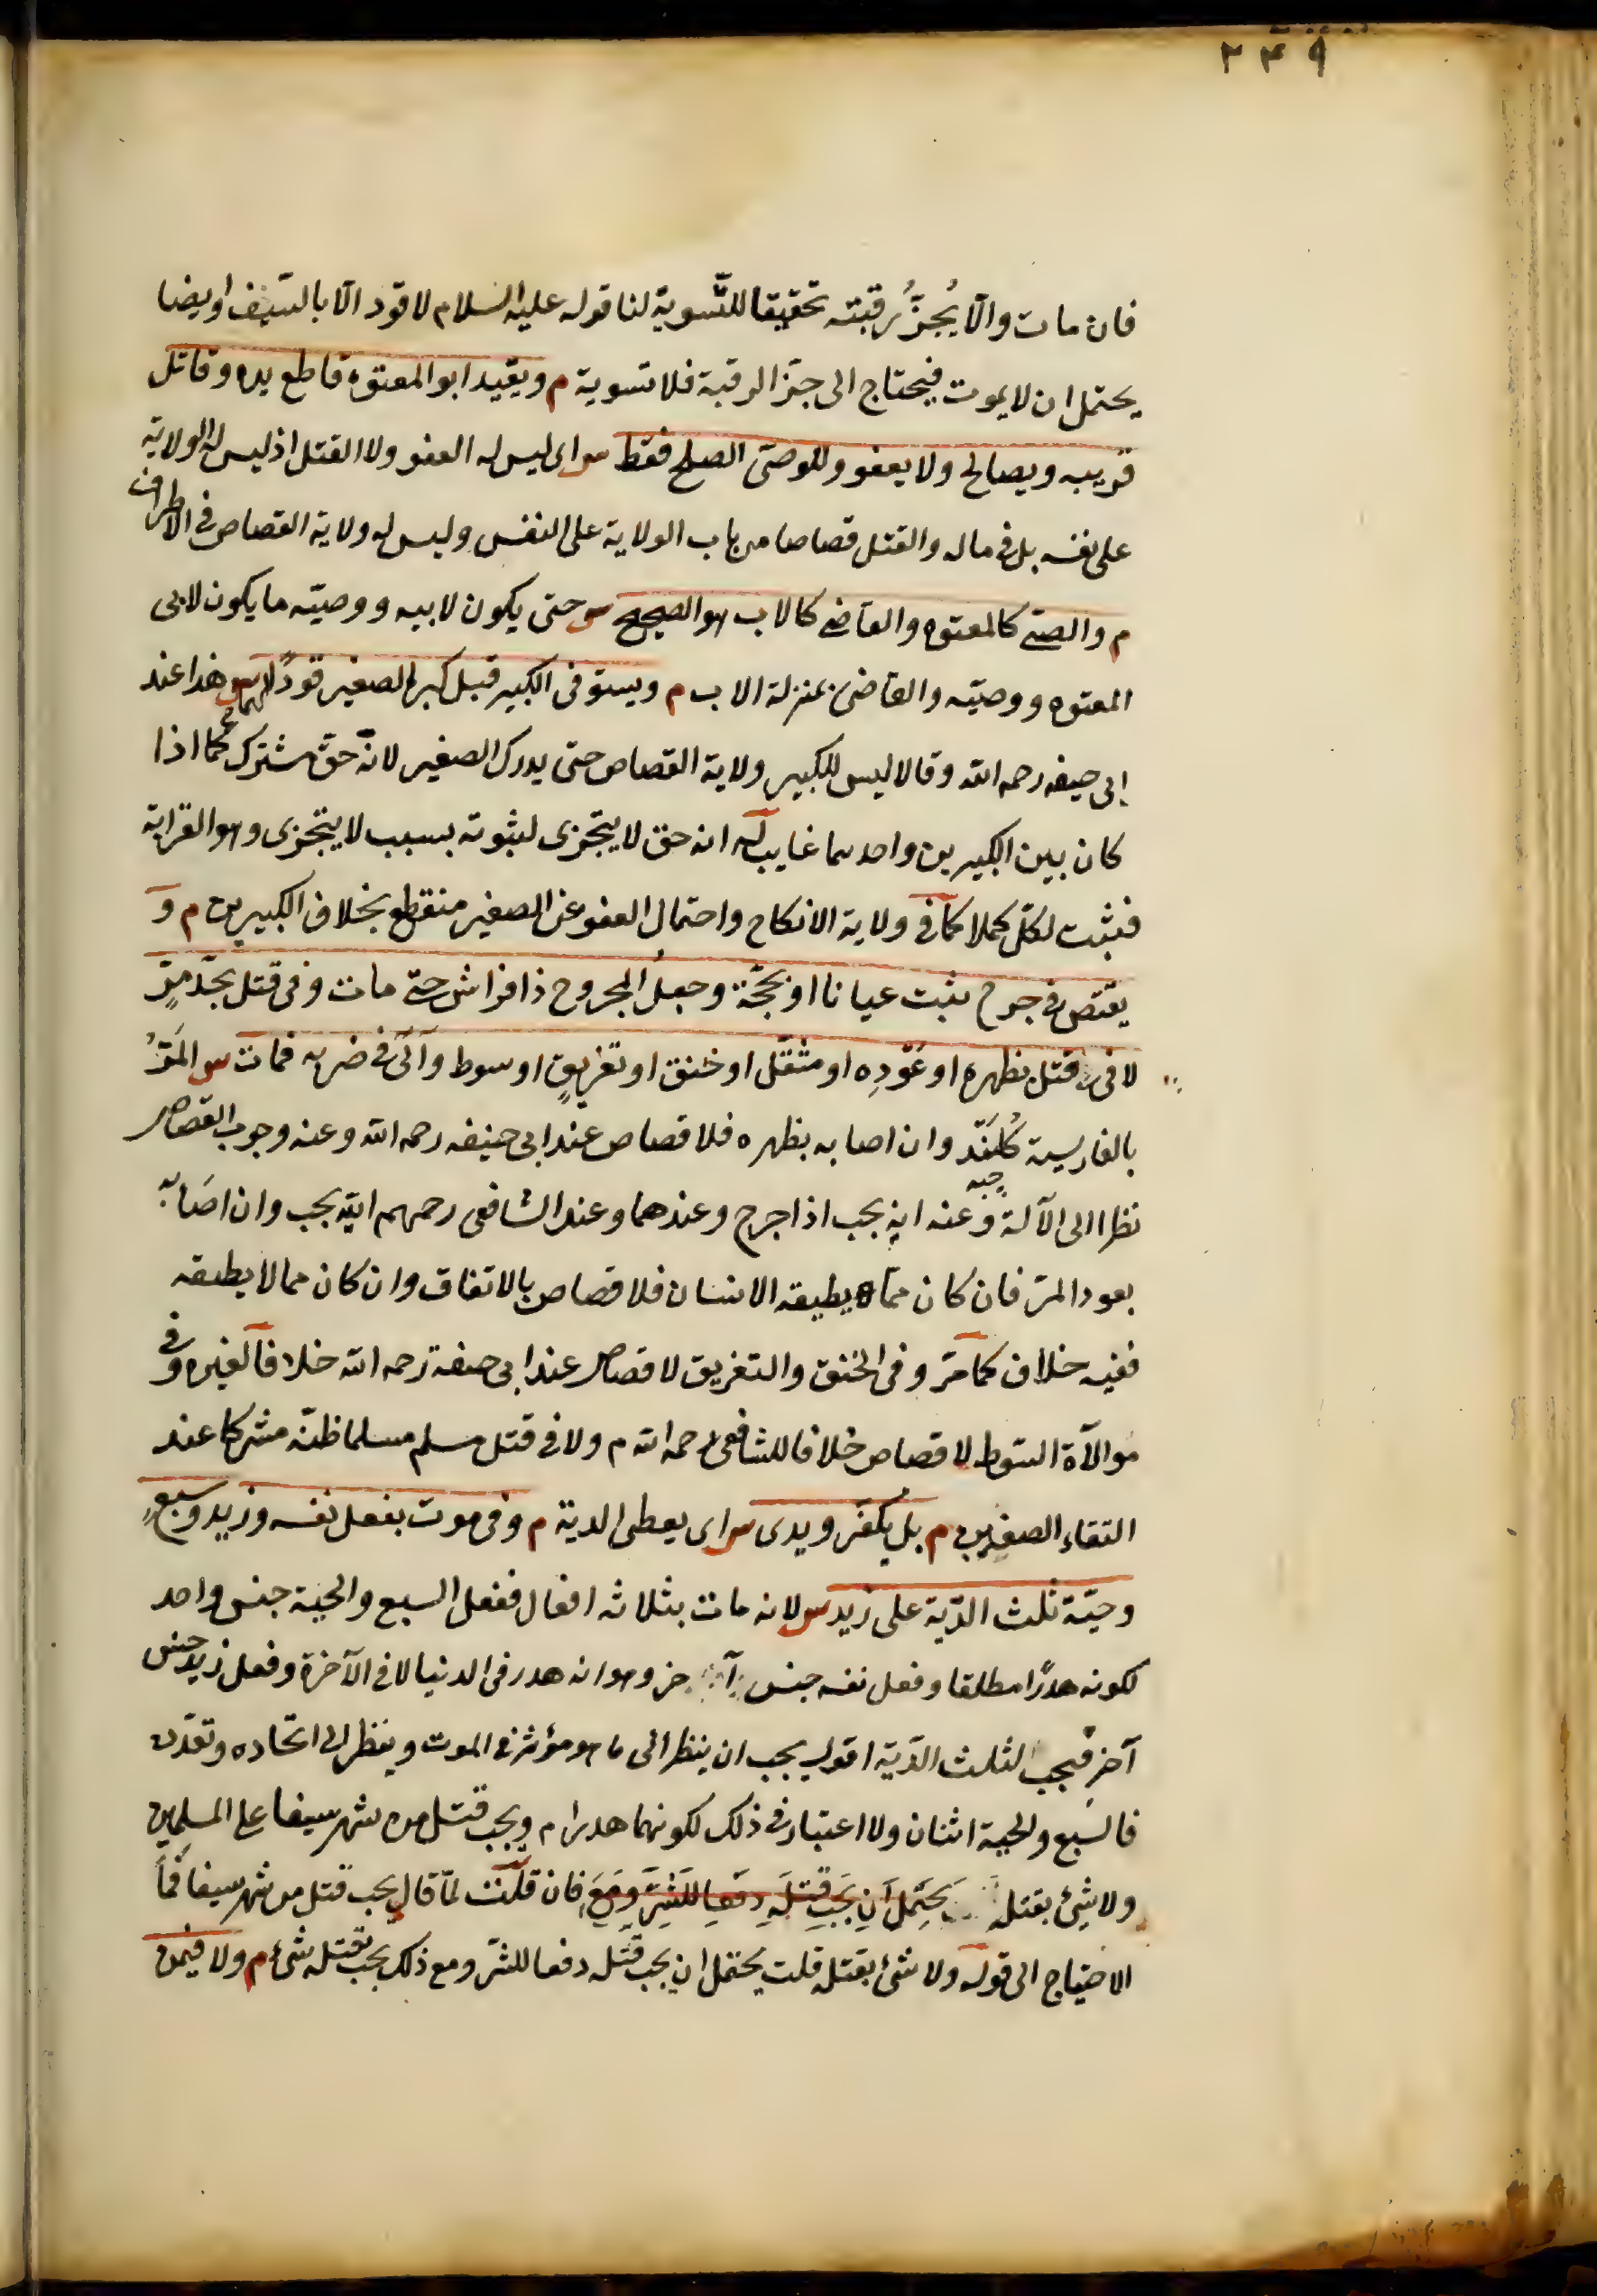 ٢٤٩
فان مات والا يُجزُّ رقبته تحقيقا للتّسوية لنا قوله عليه السلام لا قود الا بالسّيف وايضا
يحتمل ان لا يموت فيحتاج الى جزّ الرقبة فلا تسوية م ويقيد ابو المعتوه قاطع يده وقاتل
قريبه ويصالح ولا يعفو وللوصىّ الصلح فقط س اى ليس له العفو ولا القتل اذ ليس له الولاية
على نفسه بل فى ماله والقتل قصاصا من باب الولاية على النفس وليس له ولاية القصاص فى الاطراف
م والصبّى كالمعتوه والقاضى كالاب هو الصحيح س حتى يكون لابيه ووصيّه ما يكون لابى
المعتوه ووصيّه والقاضى بمنزلة الاب م ويستوفى الكبير قبل كبر الصغير قودًا لهما س هذا عند
ابى حنيفه رحمه الله وقالا ليس للكبير ولاية القصاص حتى يدرك الصغير لانّه حقّ مشترك كما اذا
كان بين الكبيرين واحدهما غايب له انه حق لا يتجزى لثبوته بسبب لا يتجزى وهو القرابة
فثبت لكلّ كملا كما فى ولاية الانكاح واحتمال العفو عن الصغير منقطع بخلاف الكبيرين م و
يقتص فى جرح ثبت عيانا او بحجّة وجعل المجروح ذا فراش حتى مات وفى قتل بحدّ مرّ
لا فى قتل بظهره او عُوّدِه او مثقّل او خنق او تغريقٍ او سوط والى فى ضربه فمات س المَرُّ
بالفارسية كُلَنْد وان اصابه بظهره فلا قصاص عند ابى حنيفه رحمه الله وعنه وجوب القصاص
نظرا الى الآلة وعنه انه يجب اذا جرح وعندهما وعند الشافعى رحمهم الله يجب وان اصابه
بعود المرّ فان كان ممّا يطيقه الانسان فلا قصاص بالاتفاق وان كان مما لا يطيقه
ففيه خلاف كما مرّ وفى الخنق والتغريق لا قصاص عند ابى حنيفة رحمه الله خلافا لغيره وفى
موالاة السّوط لا قصاص خلافا للشافعى رحمه الله م ولا فى قتل مسلم مسلما ظنّه مشركا عند
التقاء الصفين م بل يكفّر ويدى س اى يعطى الدية م وفى موت بفعل نفسه وزيد وسبعٍ
وحيّة ثلث الدّية على زيد س لانه مات بثلاثه افعال ففعل السبع والحية جنس واحد
لكونه هدرًا مطلقا وفعل نفسه جنس آخر وهو انه هدر فى الدنيا لا فى الآخرة وفعل زيد جنس
آخر فيجب الثلث الدّية اقول يجب ان ينظر الى ما هو مؤثر فى الموت وينظر الى اتحاده وتعدّده
فالسّبع والحية اثنان ولا اعتبار فى ذلك لكونهما هدرا م ويجب قتل من شهر سيفا على المسلمين
ولا شئ بقتله يحتمل ان يجب قتله دفعا للشرّ ومع فان قلت لمّا قال يجب قتل من شهر سيفا فما
الاحتياج الى قوله ولا شئ بقتله قلت يحتمل ان يجب قتله دفعا للشرّ ومع ذلك يجب بقتله شئ م ولا فيمن